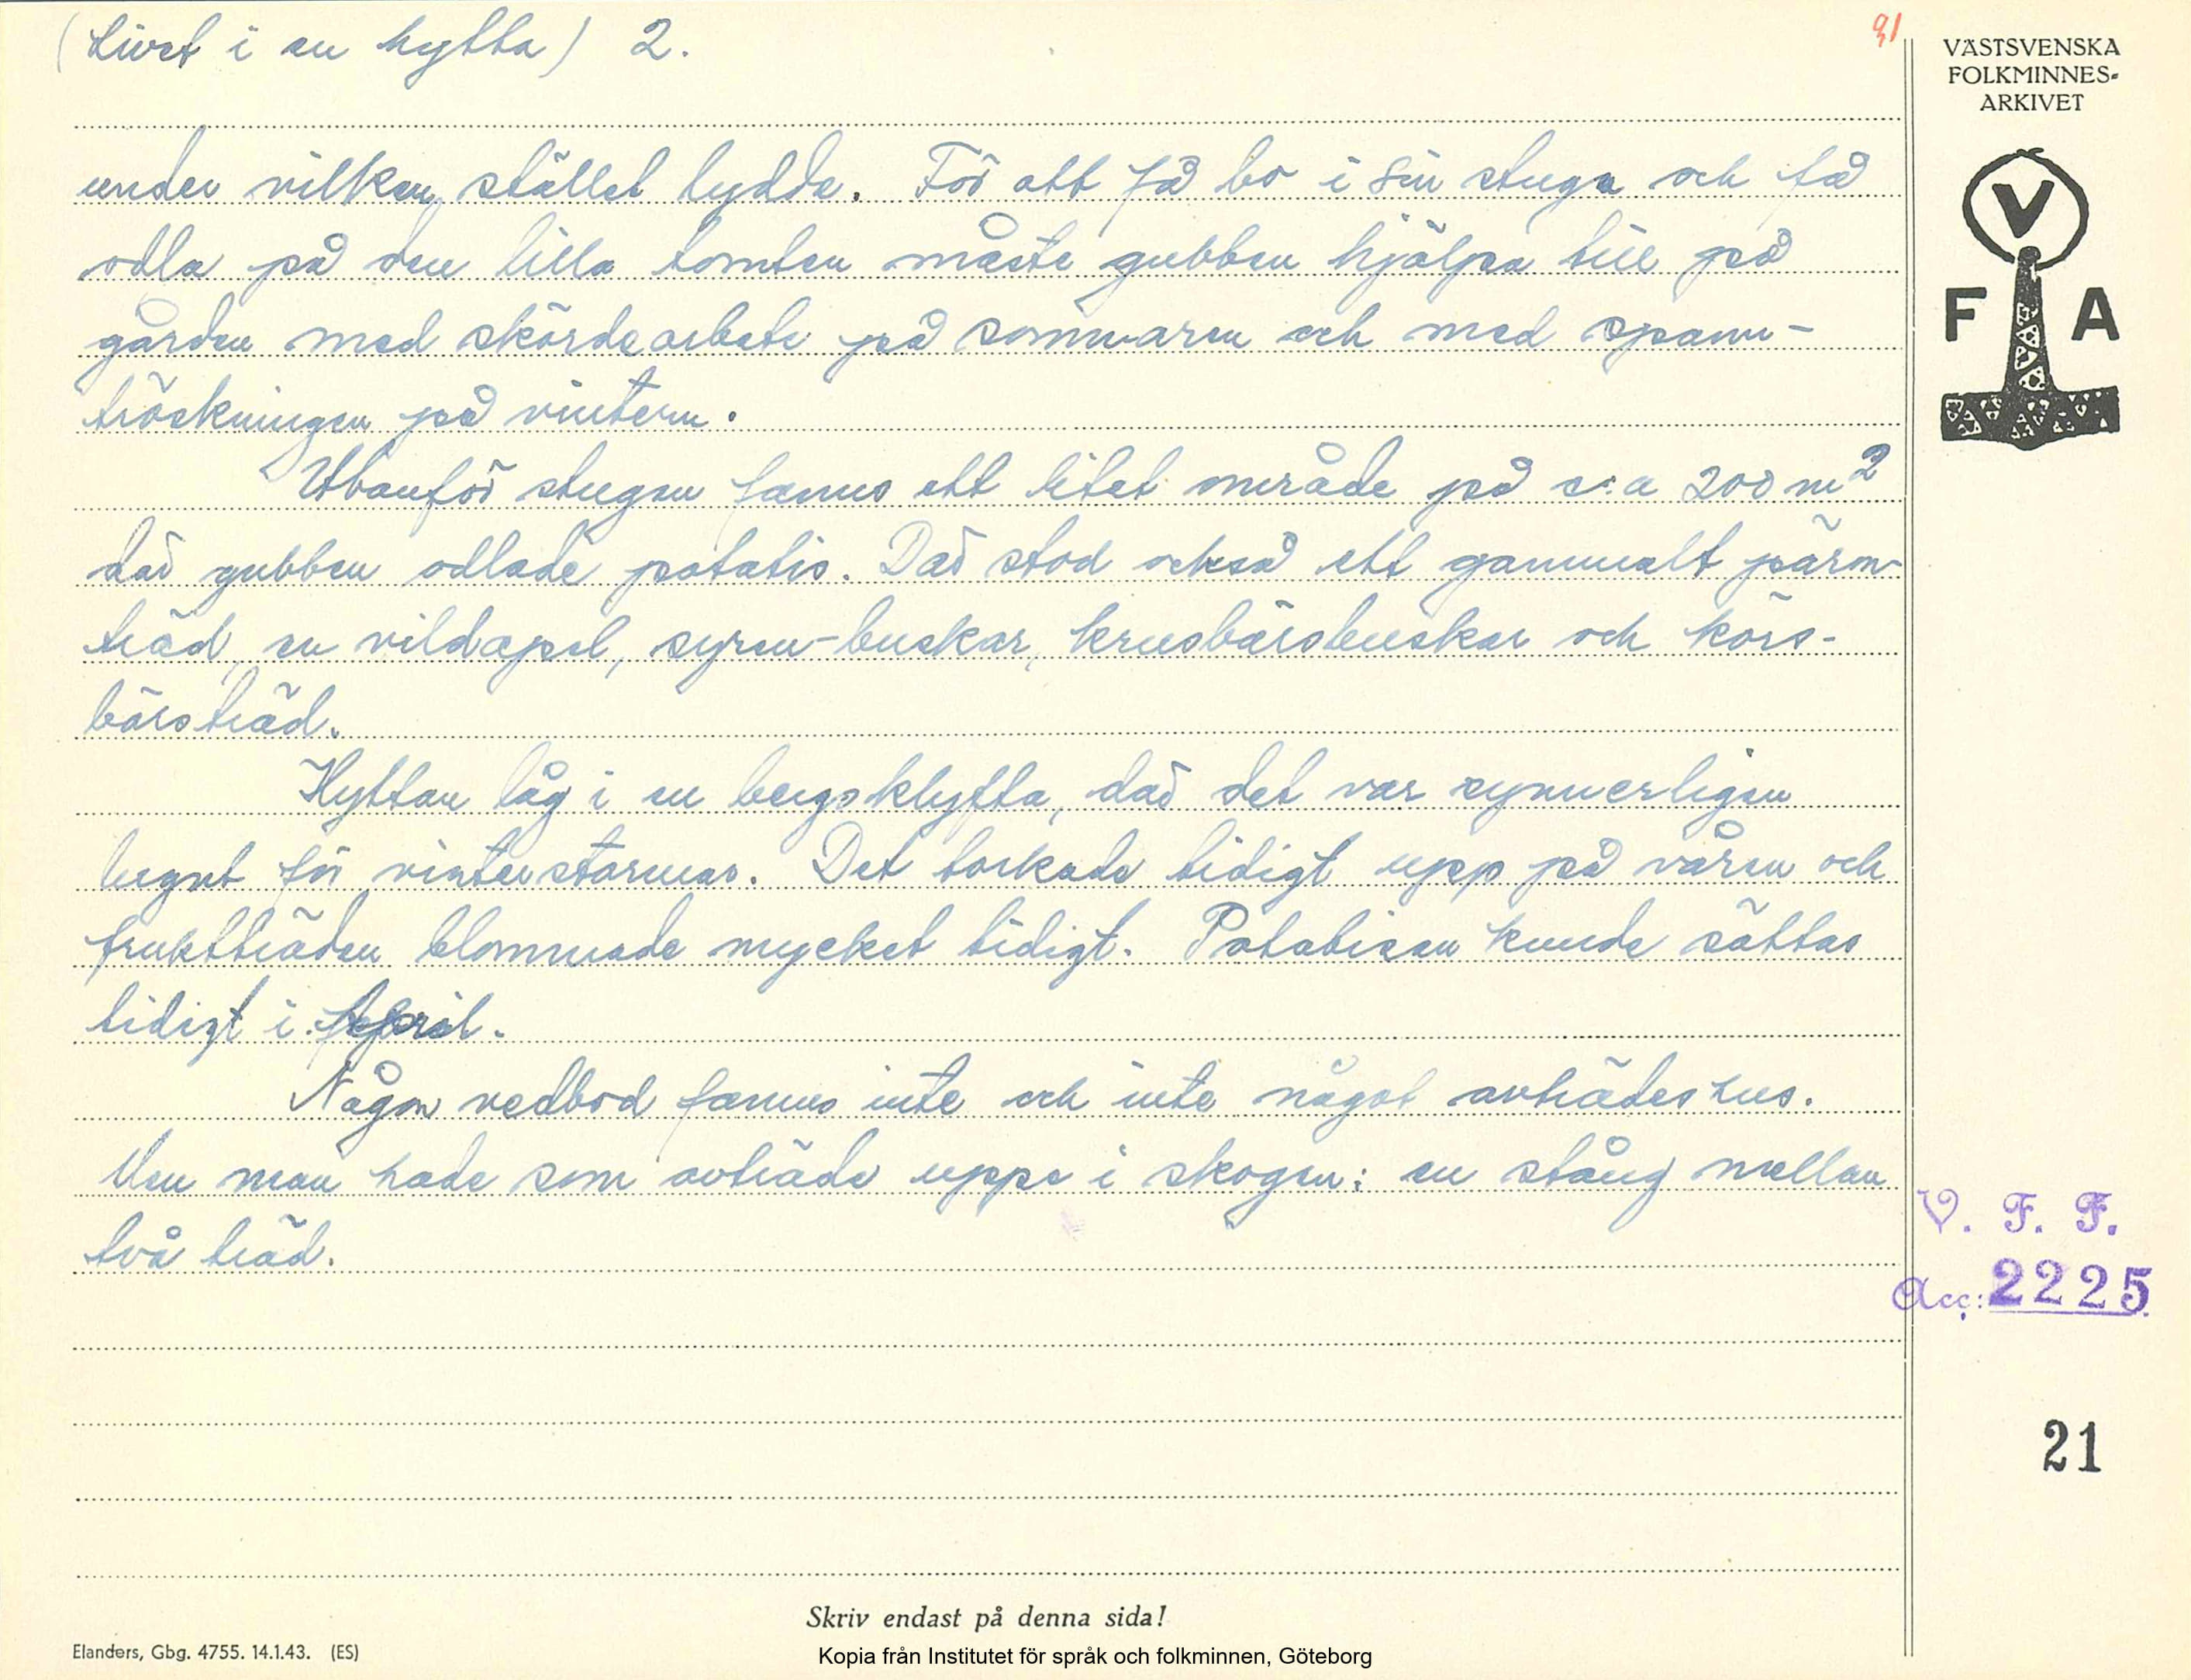 (Livet i en hytta) 2.
91
VÄSTSVENSKA
FOLKMINNES-
ARKIVET
V
F A
under vilken stället lydde. För att få bo i sin stuga och få
odla på den lilla tomten måste gubben hjälpa till på
gården med skördearbete på sommaren och med spann-
tröskningen på vintern.
Utanför stugan fanns ett litet område på c:a 200 m²
där gubben odlade potatis. Där stod också ett gammalt päron-
träd, en vildapel, syren-buskar, krusbärsbuskar och körs-
bärsträd.
Hyttan låg i en bergsklyfta, där det var synnerligen
lugnt för vinterstormar. Det torkade tidigt upp på våren och
fruktträden blommade mycket tidigt. Potatisen kunde sättas
tidigt i April.
Någon vedbod fanns inte och inte något avträdeshus.
Men man hade som avträde uppe i skogen: en stång mellan
två träd.
V. F. F.
Acc: 2225
21
Skriv endast på denna sida!
Elanders, Gbg. 4755. 14.1.43. (ES)
Kopia från Institutet för språk och folkminnen, Göteborg